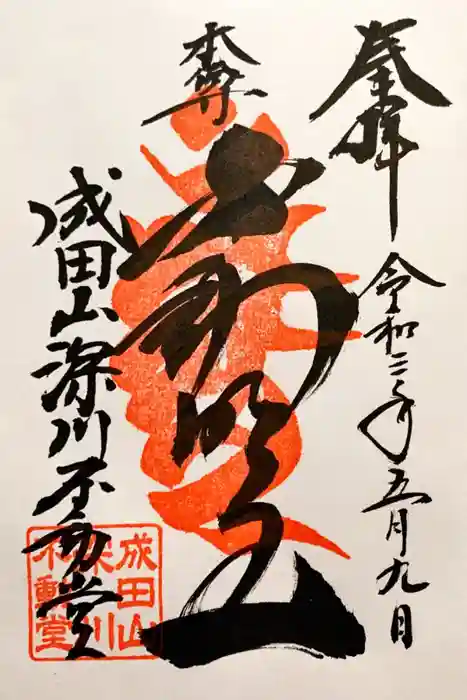 奉拝
令和二年五月九日
本尊
不動明王
成田山深川不動堂
成田山
深川
不動堂